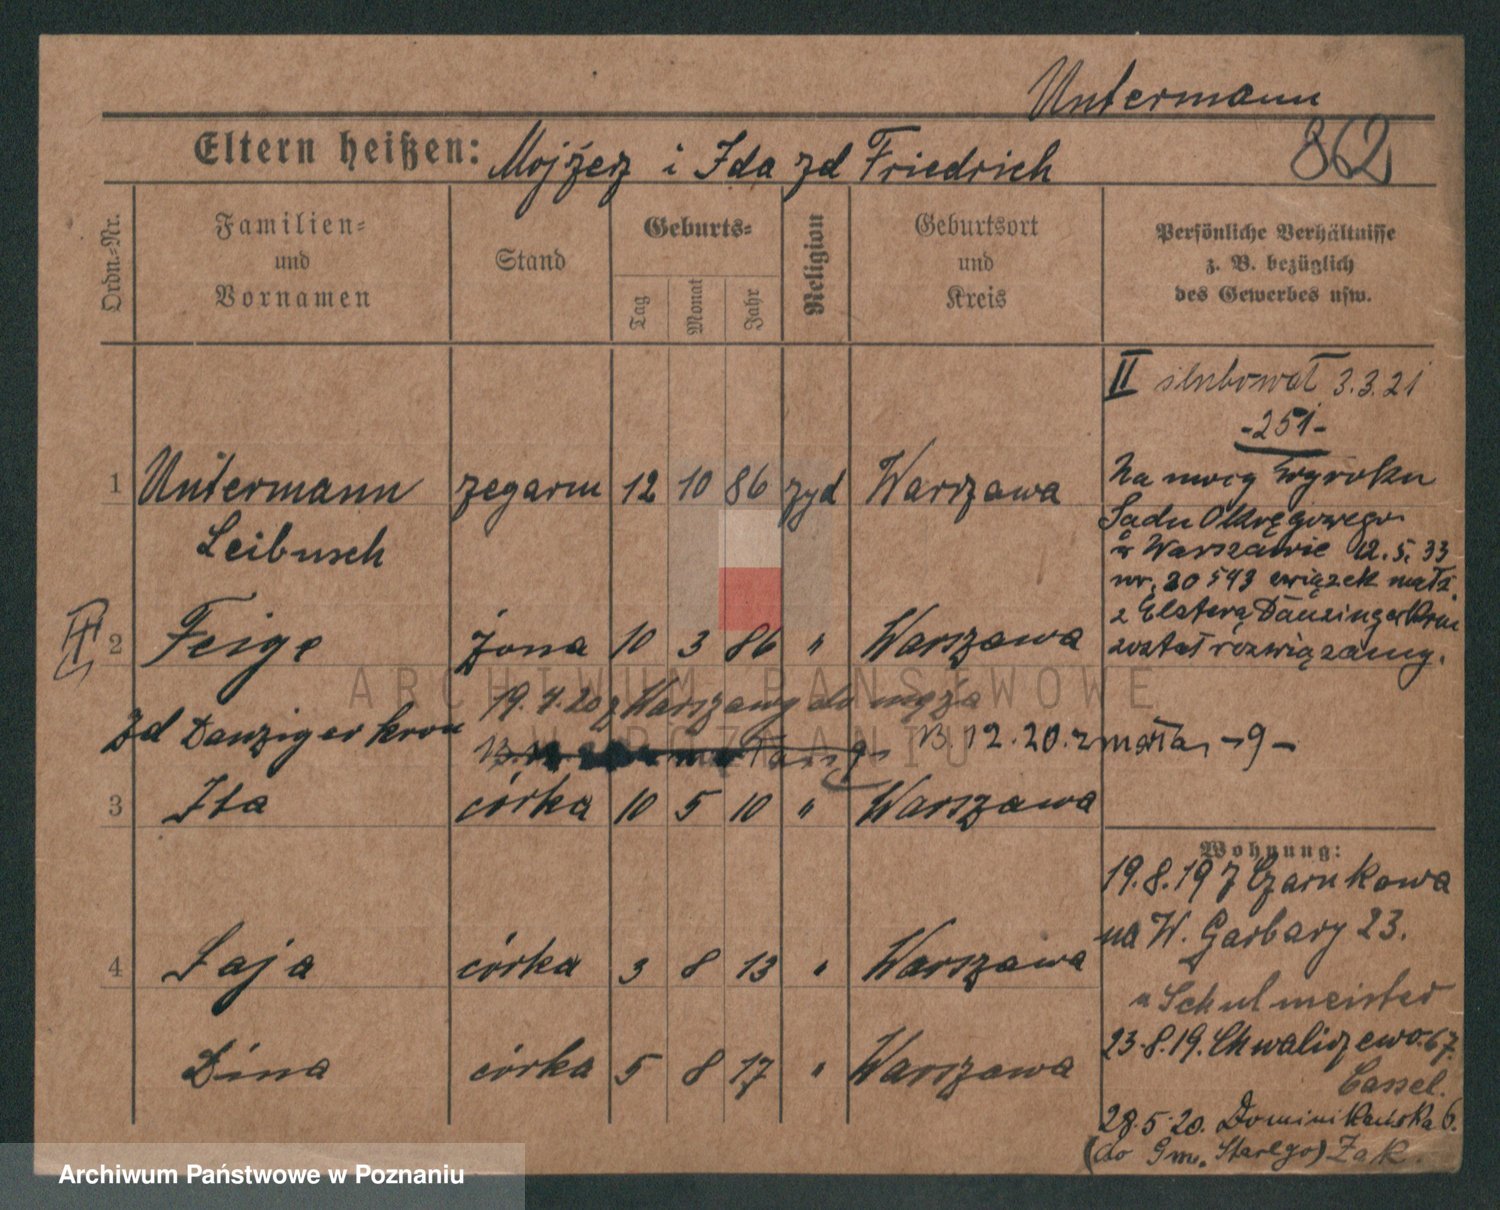 Untermann
862
Eltern heißen: Mojżesz i Ida zd Friedrich
Ordn.-Nr.
Familien-
und
Vornamen
Stand
Geburts-
Tag
Monat
Jahr
Religion
Geburtsort
und
Kreis
Persönliche Verhältnisse
z. B. bezüglich
des Gewerbes usw.
II ślubował 3.3.21
-251-
Na mocy wyroku
Sadu Okręgowego
w Warszawie 12.5.33
nr. 20543 związek małż.
z Danzigerkron
został rozwiązany.
1 Untermann zegarm 12 10 86 żyd Warszawa
Leibusch
II
2 Feige żona 10 3 86 " Warszawa
19.4.20 z Warszawy do męża
zd Danzigerkron
13.12.20. zmarła, -9-
3 Ita córka 10 5 10 " Warszawa
4 Łaja córka 3 8 13 " Warszawa
Dina córka 5 8 17 " Warszawa
Wohnung:
19.8.19 z Czarnkowa
na W. Garbary 23.
u Schulmeister
23.8.19. Chwaliszewo 67.
Cassel.
28.5.20. Dominikańska 6.
(do Gm. Starego) Żak.
ARCHIWUM PAŃSTWOWE
W POZNANIU
Archiwum Państwowe w Poznaniu